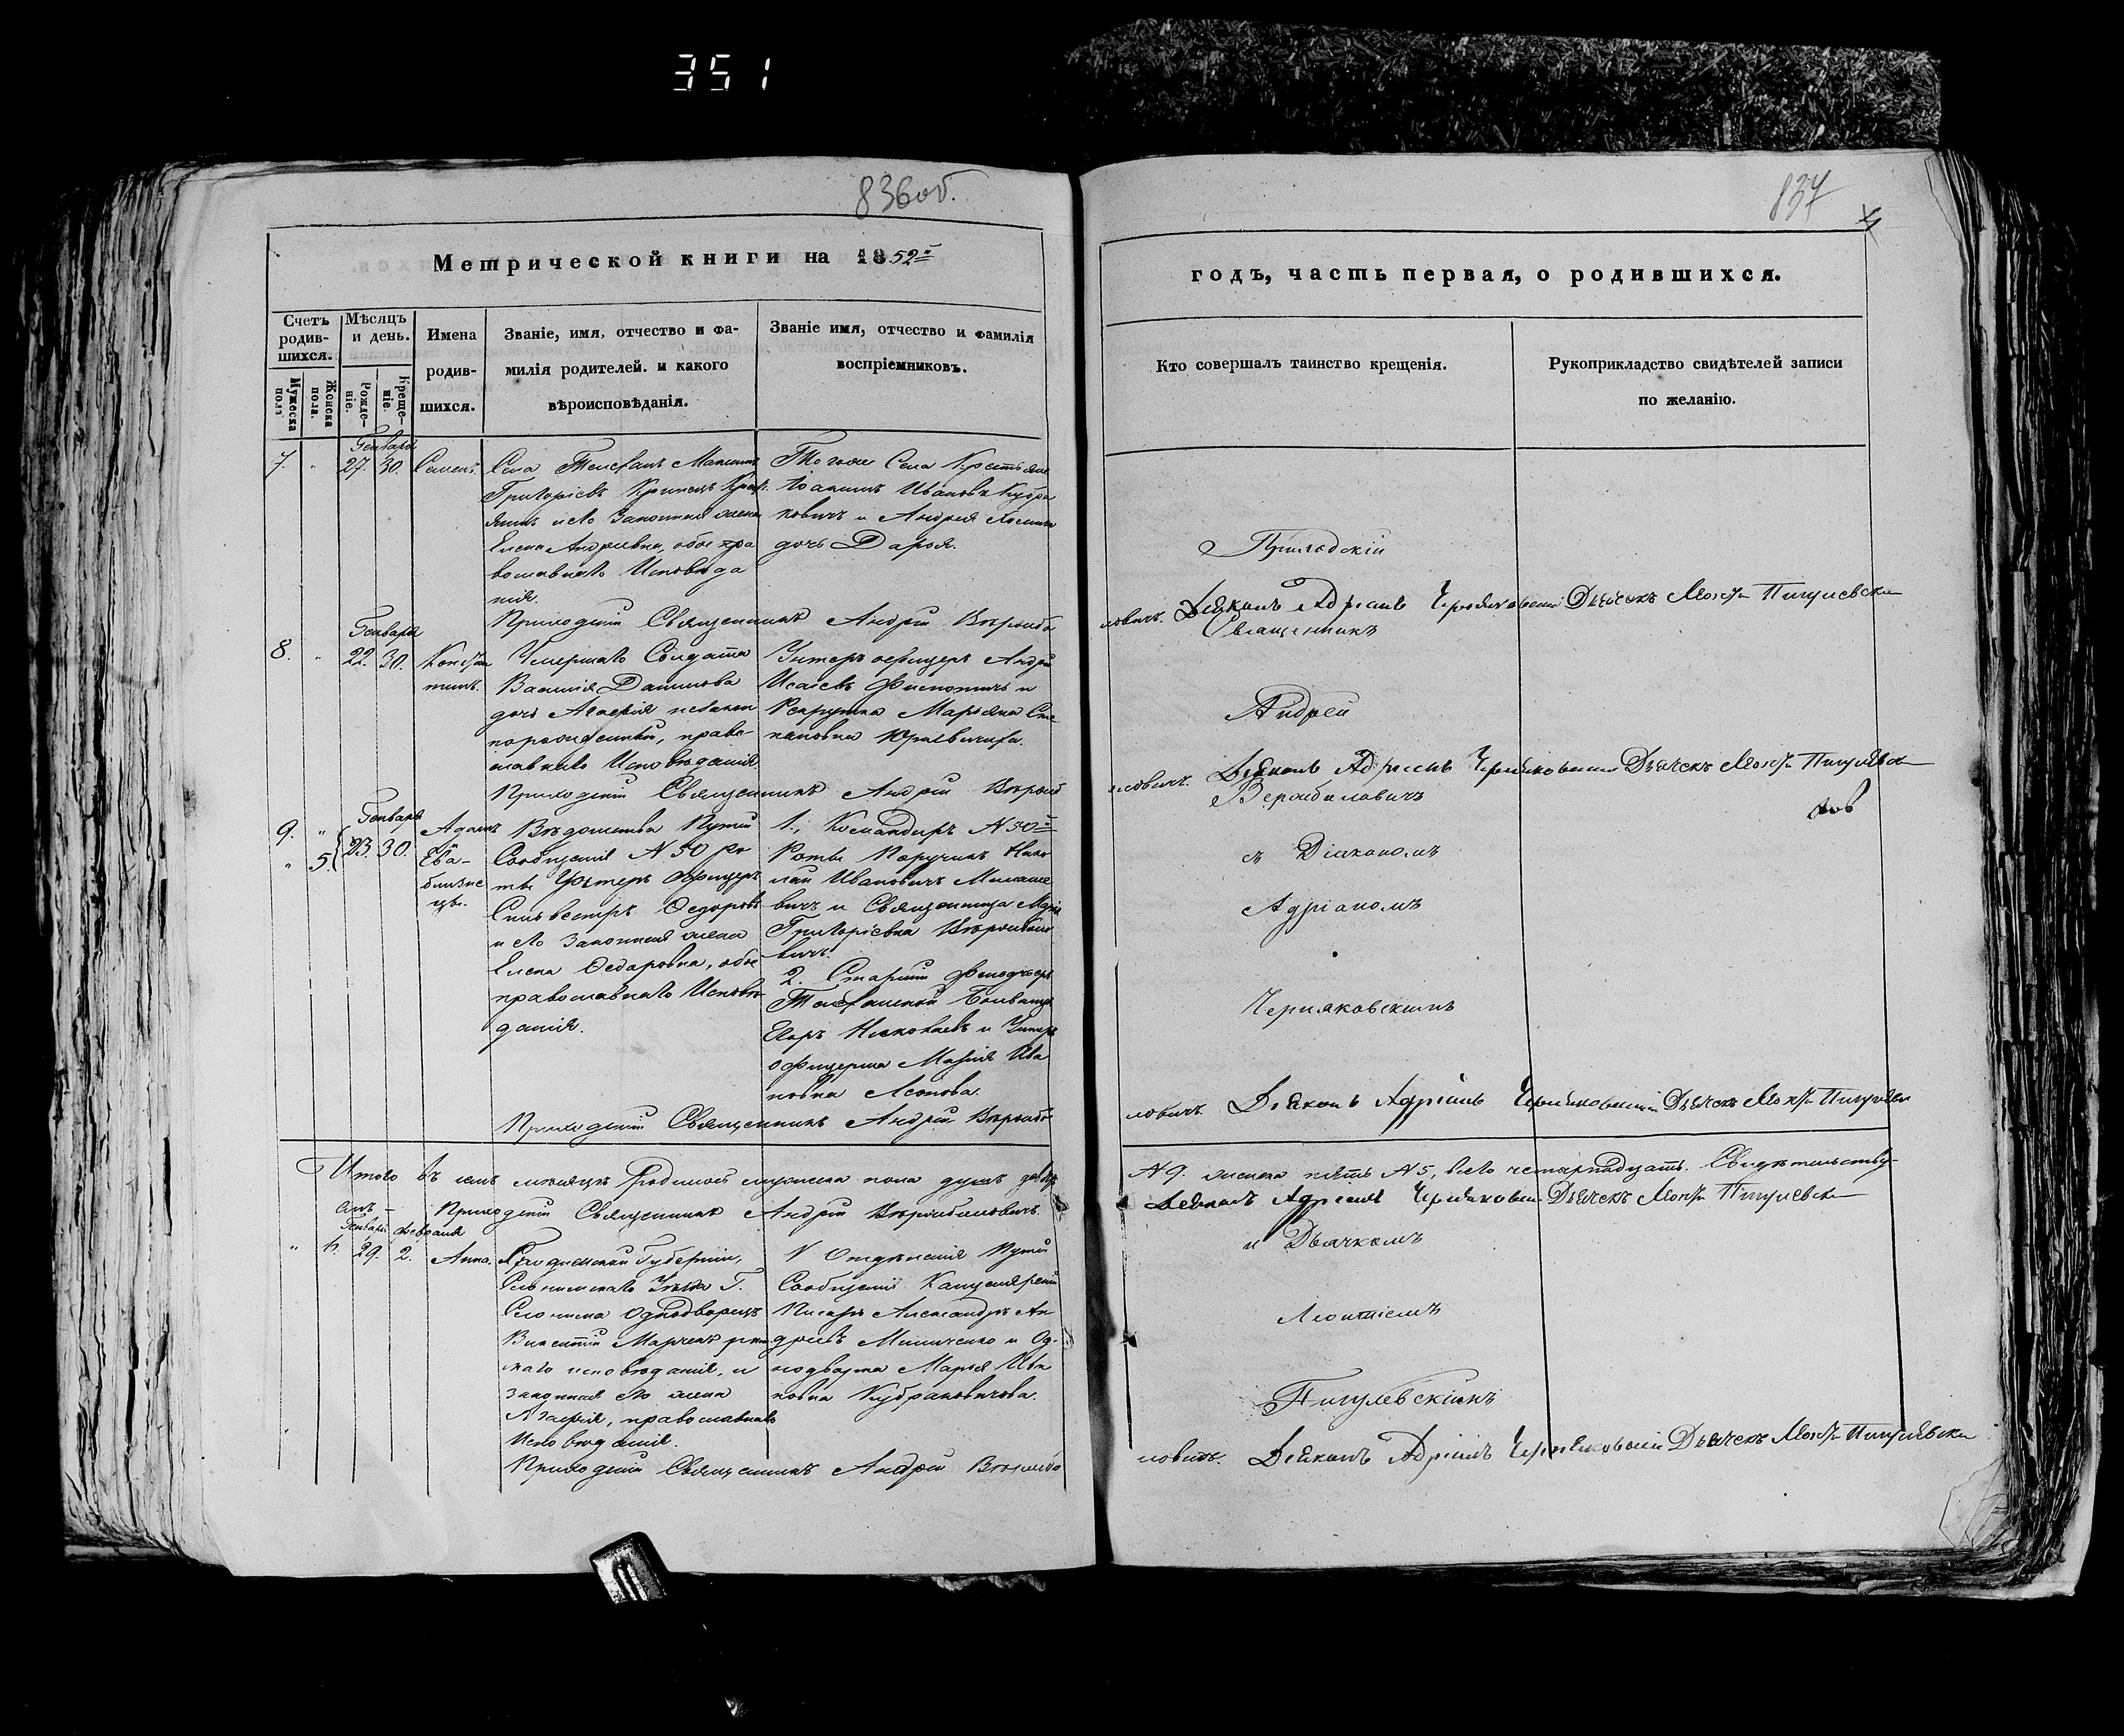 351
836об.
Метрической книги на 1852й
Счетъ родив-шихся.
Мужеска полъ
Женска пола.
Мѣсяцъ и день.
Рожде-ніе.
Креще-ніе.
Имена родив-шихся.
Званіе, имя, отчество и фа-
милія родителей. и какого
вѣроисповѣданія.
Званіе имя, отчество и фамилія
воспріемниковъ.
Генваря
7. " 27. 30. Семенъ.
Села
Григоріевъ
и его Законная жена
Елена Андреевна, обое пра
вославнаго Исповѣда
нія.
Того же Села Крестьяне
Іоакимъ Ивановъ Кубра
ковичъ и Андрея
дочь Дарья.
Приходскій Священникъ Андрей Вѣромбо
Генваря
8. " 22. 30. Констан
тинъ.
Умершаго Солдата
Василія Данилова
дочь
порожденный, право-
славнаго Исповѣданія.
Унтеръ офицеръ Андрей
Исаевъ и
Марьяна Сте
пановна
Приходскій Священникъ Андрей Вѣромбо
Генваря
9. " 23. 30. Адамъ
" 5. и
Ева-
близне
цы.
Вѣдомства Путей
Сообщенія N 50 Ро
ты Унтеръ Офицеръ
Сильвестръ Ѳедоровъ
и его Законная жена
Елена Ѳедоровна, обое
православнаго Исповѣ
данія.
1., Командиръ N 50й
Роты Поручикъ Нико
лай Ивановичъ
вичъ и Священница Марія
Григоріевна Вѣромбало
вичъ.
2. Старшій Фельдшеръ
Больницы
Егоръ и Унтеръ
офицерша Марія Ива
новна
Приходскій Священникъ Андрей Вѣромбо
Итого въ семъ мѣсяцѣ Родилось мужеска пола душъ девять
Приходскій Священникъ Андрей Вѣромбаловичъ
Генваря Февраля
" 6. 29. 2. Анна.
Гродненской Губерніи,
Слонимскаго Уѣзда Г.
Слонима Однодворецъ
Викентій Марчекъ рим
скаго исповѣданія, и
законная его жена
православнаго
Исповѣданія.
V Отдѣленія Путей
Сообщенія Канцелярскій
Писарь Александръ Ан
дреевъ и Од-
нодворка Марья Ива
новна Кубраковичова.
Приходскій Священникъ Андрей Вѣромбо
837
4
годъ, часть первая, о родившихся.
Кто совершалъ таинство крещенія.
Рукоприкладство свидѣтелей записи
по желанію.
Приходскій
ловичъ. Діаконъ Адріанъ Черняковскій Дьячекъ Леонтій Пигулевскій
Священникъ
Андрей
ловичъ. Діаконъ Адріанъ Черняковскій Дьячекъ Леонтій Пигулевскій
Верембаловичъ
съ Діакономъ
Адріаномъ
Черняковскимъ
ловичъ. Діаконъ Адріанъ Черняковскій Дьячекъ Леонтій Пигулевскій
N 9. женска пять N 5, всего четырнадцать. Свидѣтельству
Діаконъ Адріанъ Черняковскій Дьячекъ Леонтій Пигулевскій
и Дьячкомъ
Леонтіемъ
Пигулевскимъ
ловичъ. Діаконъ Адріанъ Черняковскій Дьячекъ Леонтій Пигулевскій